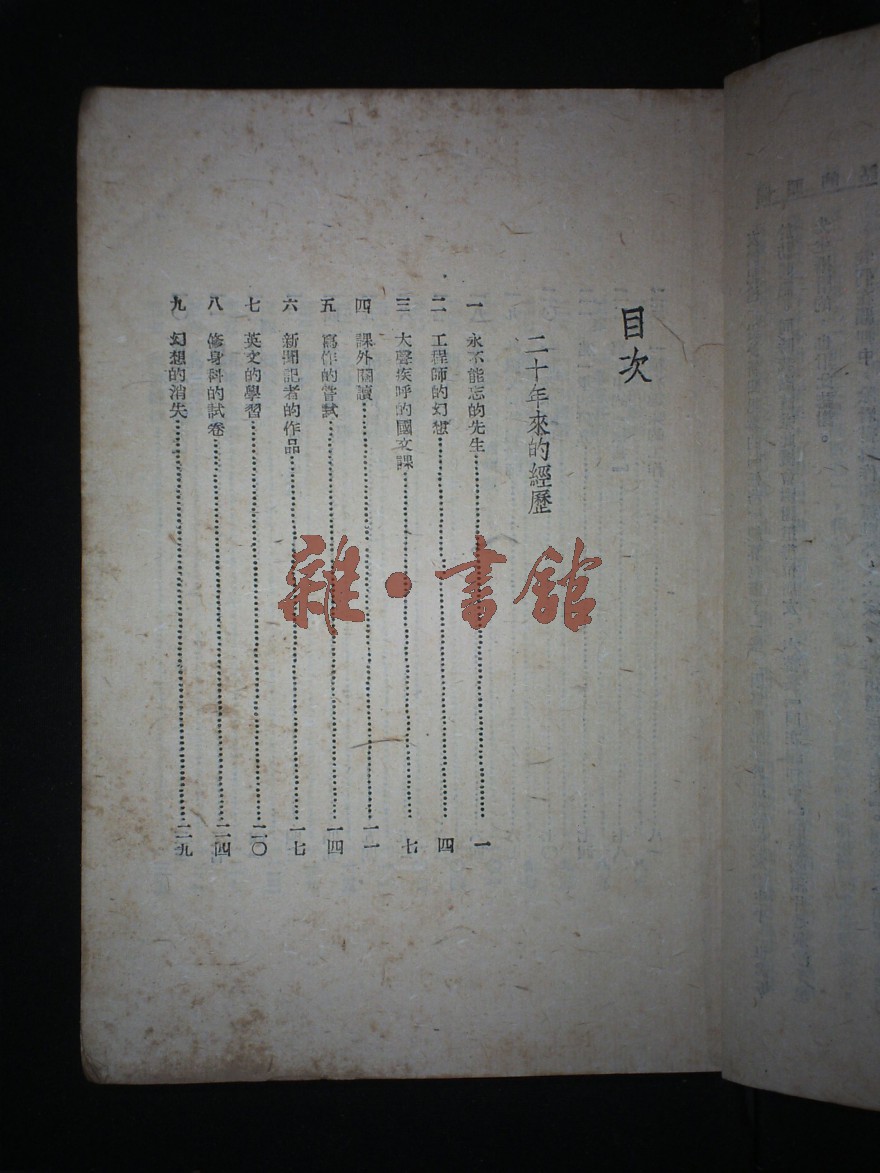 目次
二十年來的經歷
一 永不能忘的先生 一
二 工程師的幻想 四
三 大聲疾呼的國文課 七
四 課外閱讀 一一
五 寫作的嘗試 一四
六 新聞記者的作品 一七
七 英文的學習 二〇
八 修身科的試卷 二四
九 幻想的消失 二九
雜·書館